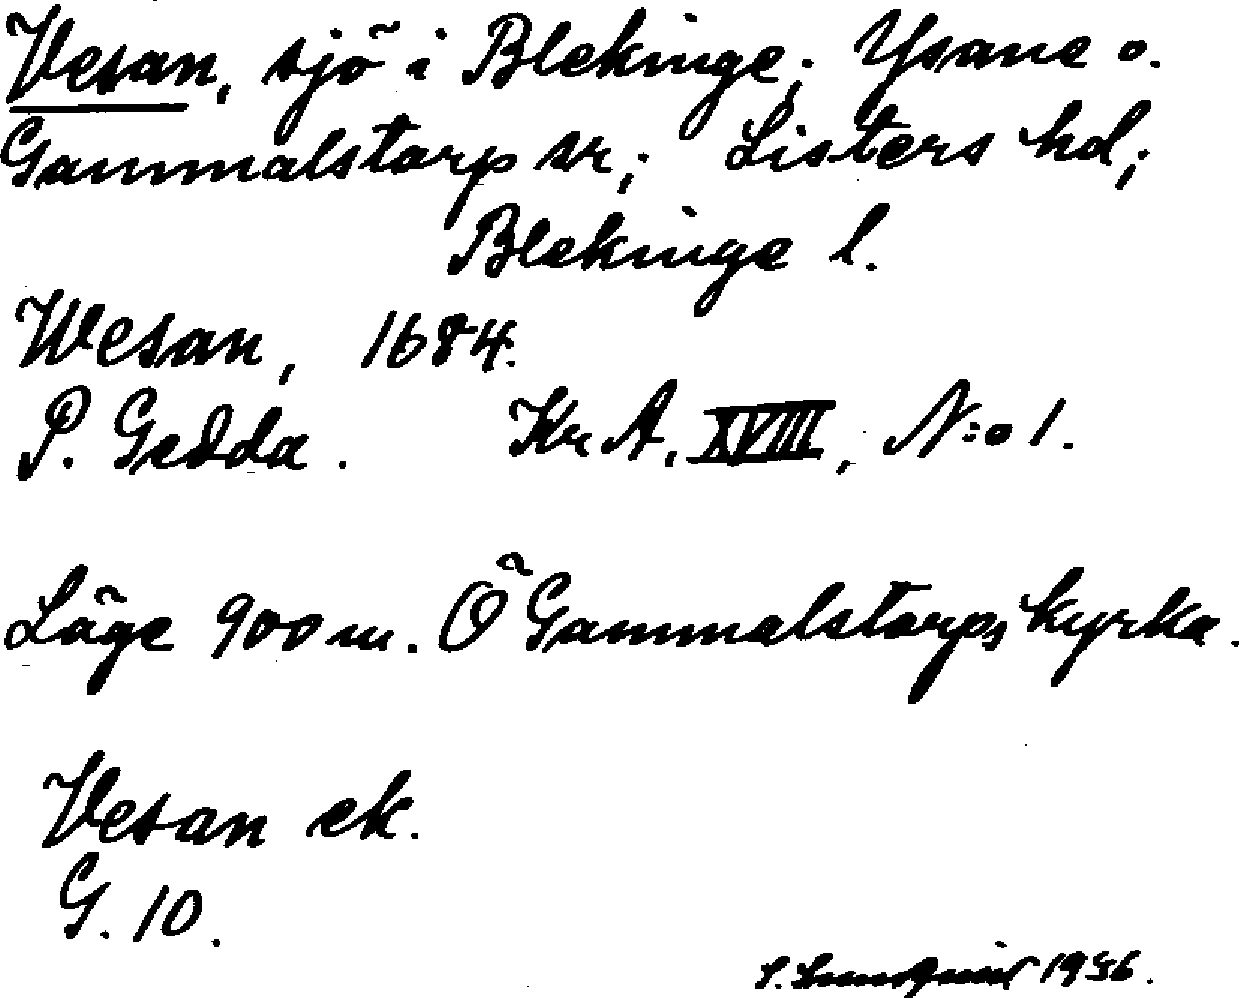 Vesan, sjö i Blekinge; Ysane o.
Gammalstorp sr; Listers hd;
Blekinge l.
Wesan, 1684.
P. Gedda. Kr A. XVIII, N:o 1.
Läge 900 m. Ö Gammalstorps kyrka.
Vesan ek.
G. 10.
S. Lundquist 1936.